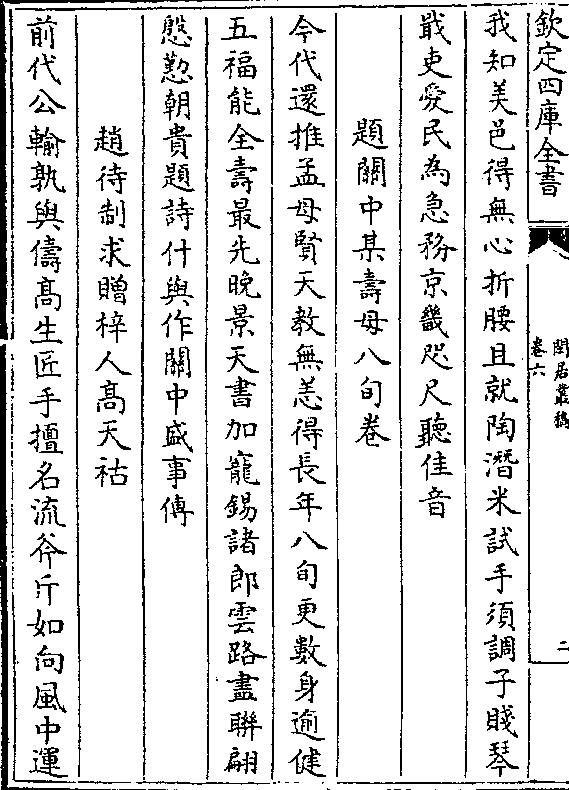 欽定四庫全書
閒居叢稿
卷六
二
我知美邑得無心折腰且就陶潛米試手須調子賤琴
戢吏愛民為急務京畿咫尺聽佳音
題關中某壽母八旬卷
今代還推孟母賢天教無恙得長年八旬更數身逾健
五福能全壽最先晚景天書加寵錫諸郎雲路盡聯翩
慇懃朝貴題詩什與作關中盛事傳
趙待制求贈梓人高天祜
前代公輸孰與儔高生匠手擅名流斧斤如向風中運